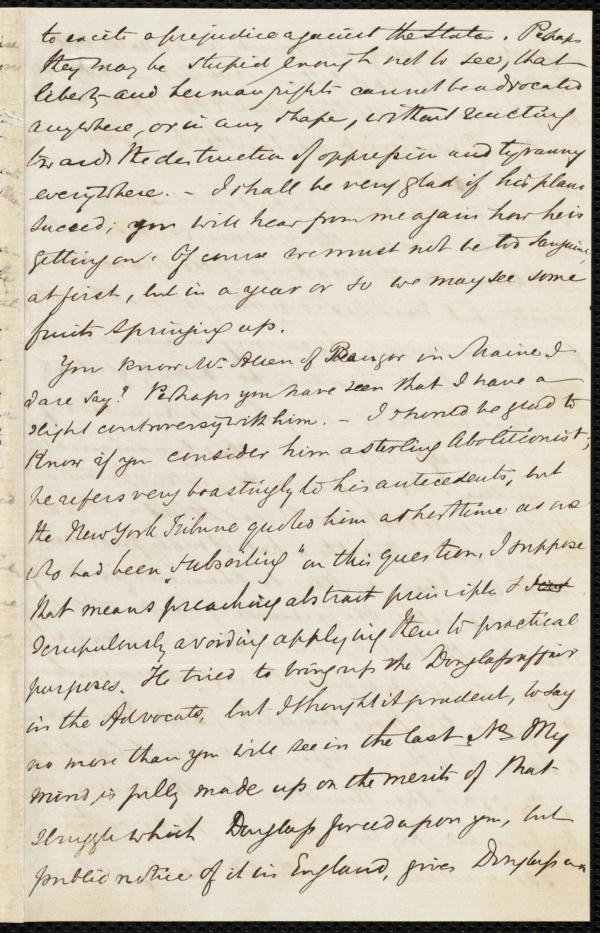 to excite a prejudice against the States. Perhaps
they may be stupid enough not to see, that
liberty and human rights cannot be advocated
anywhere, or in any shape, without reacting
towards the destruction of oppression and tyranny
everywhere. – I shall be very glad if his plans
succeed; you will hear from me again how he is
getting on. Of course we must not be too sanguine,
at first, but in a year or so we may see some
fruits springing up.
You know Mr. Allen of Bangor in Maine I
dare say? Perhaps you have seen that I have a
slight controversy with him. – I should be glad to
know if you consider him a sterling Abolitionist;
he refers very boastingly to his antecedents, but
the New York Tribune quoted him a short time as one
who had been "subsoiling" on this question, I suppose
that means preaching abstract principles &
scrupulously avoiding applying them to practical
purposes. He tried to bring up the Douglass affair
in the Advocate, but I thought it prudent, to say
no more than you will see in the last No. My
mind is fully made up on the merits of that
struggle which Douglass forced upon you, but
public notice of it in England, gives Douglass an